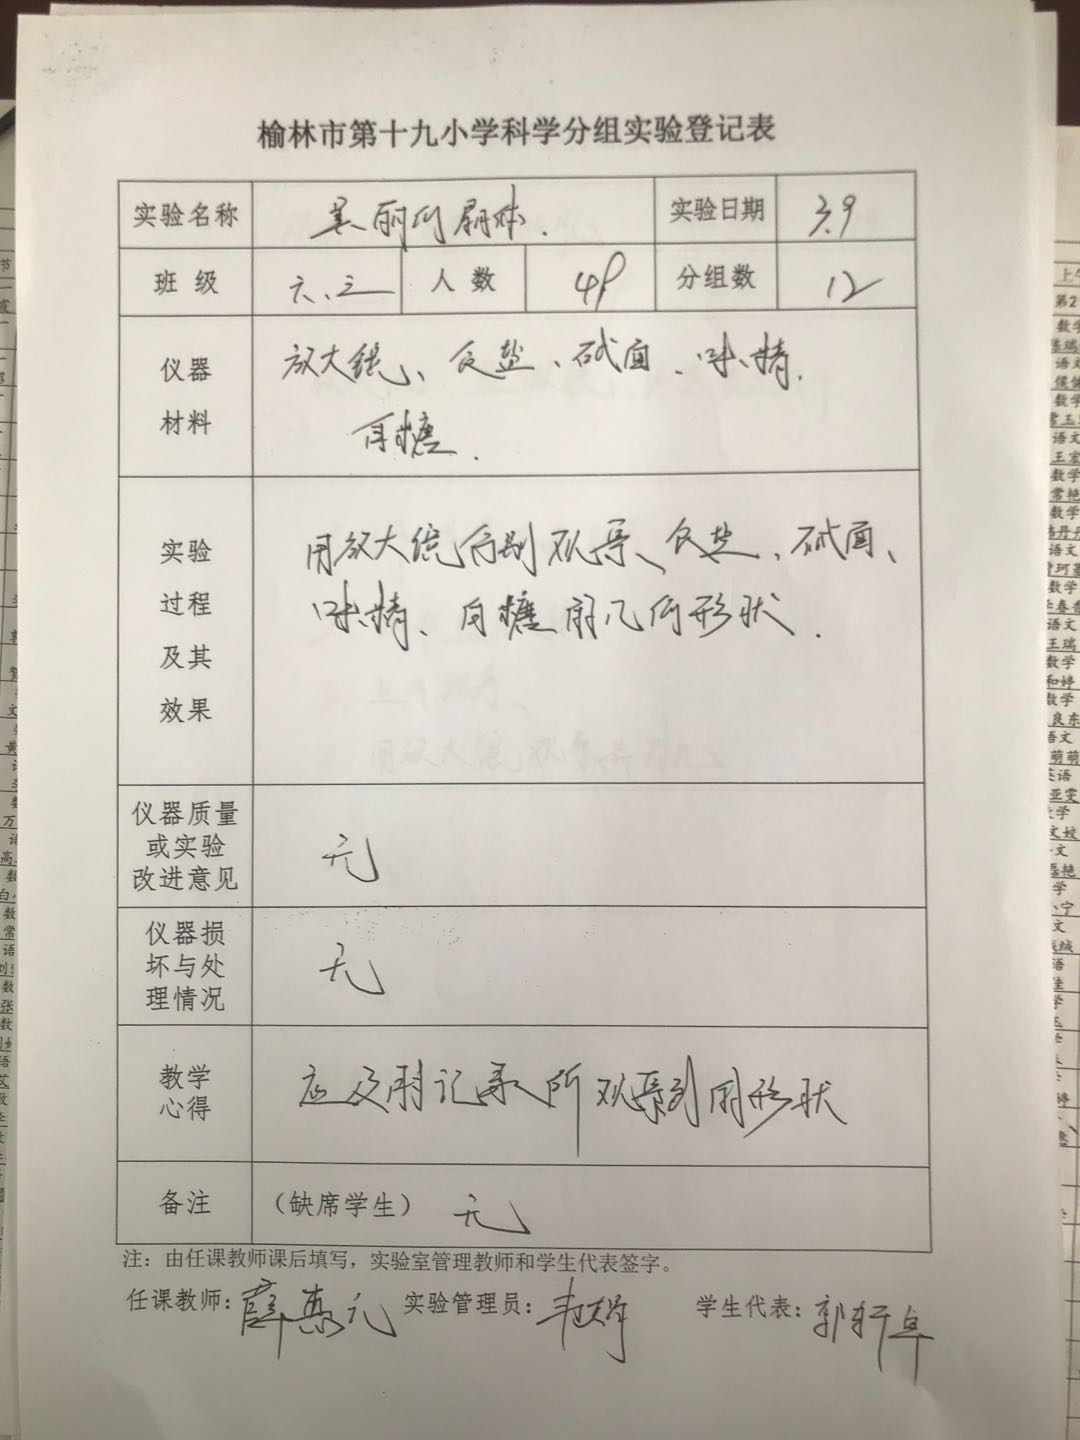 榆林市第十九小学科学分组实验登记表
实验名称 美丽的晶体. 实验日期 3.9
班级 六、三 人数 49 分组数 12
仪器材料 放大镜、食盐、碱面、味精.
白糖.
实验过程及其效果 用放大镜分别观察、食盐、碱面、
味精、白糖的几何形状.
仪器质量或实验改进意见 无
仪器损坏与处理情况 无
教学心得 应及时记录所观察到的形状
备注 (缺席学生) 无
注：由任课教师课后填写，实验室管理教师和学生代表签字。
任课教师：薛惠元 实验管理员： 学生代表：郭轩卓